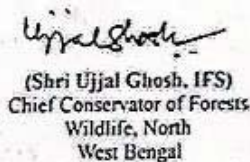 Ujjal Ghosh
(Shri Ujjal Ghosh, IFS)
Chief Conservator of Forests
Wildlife, North
West Bengal